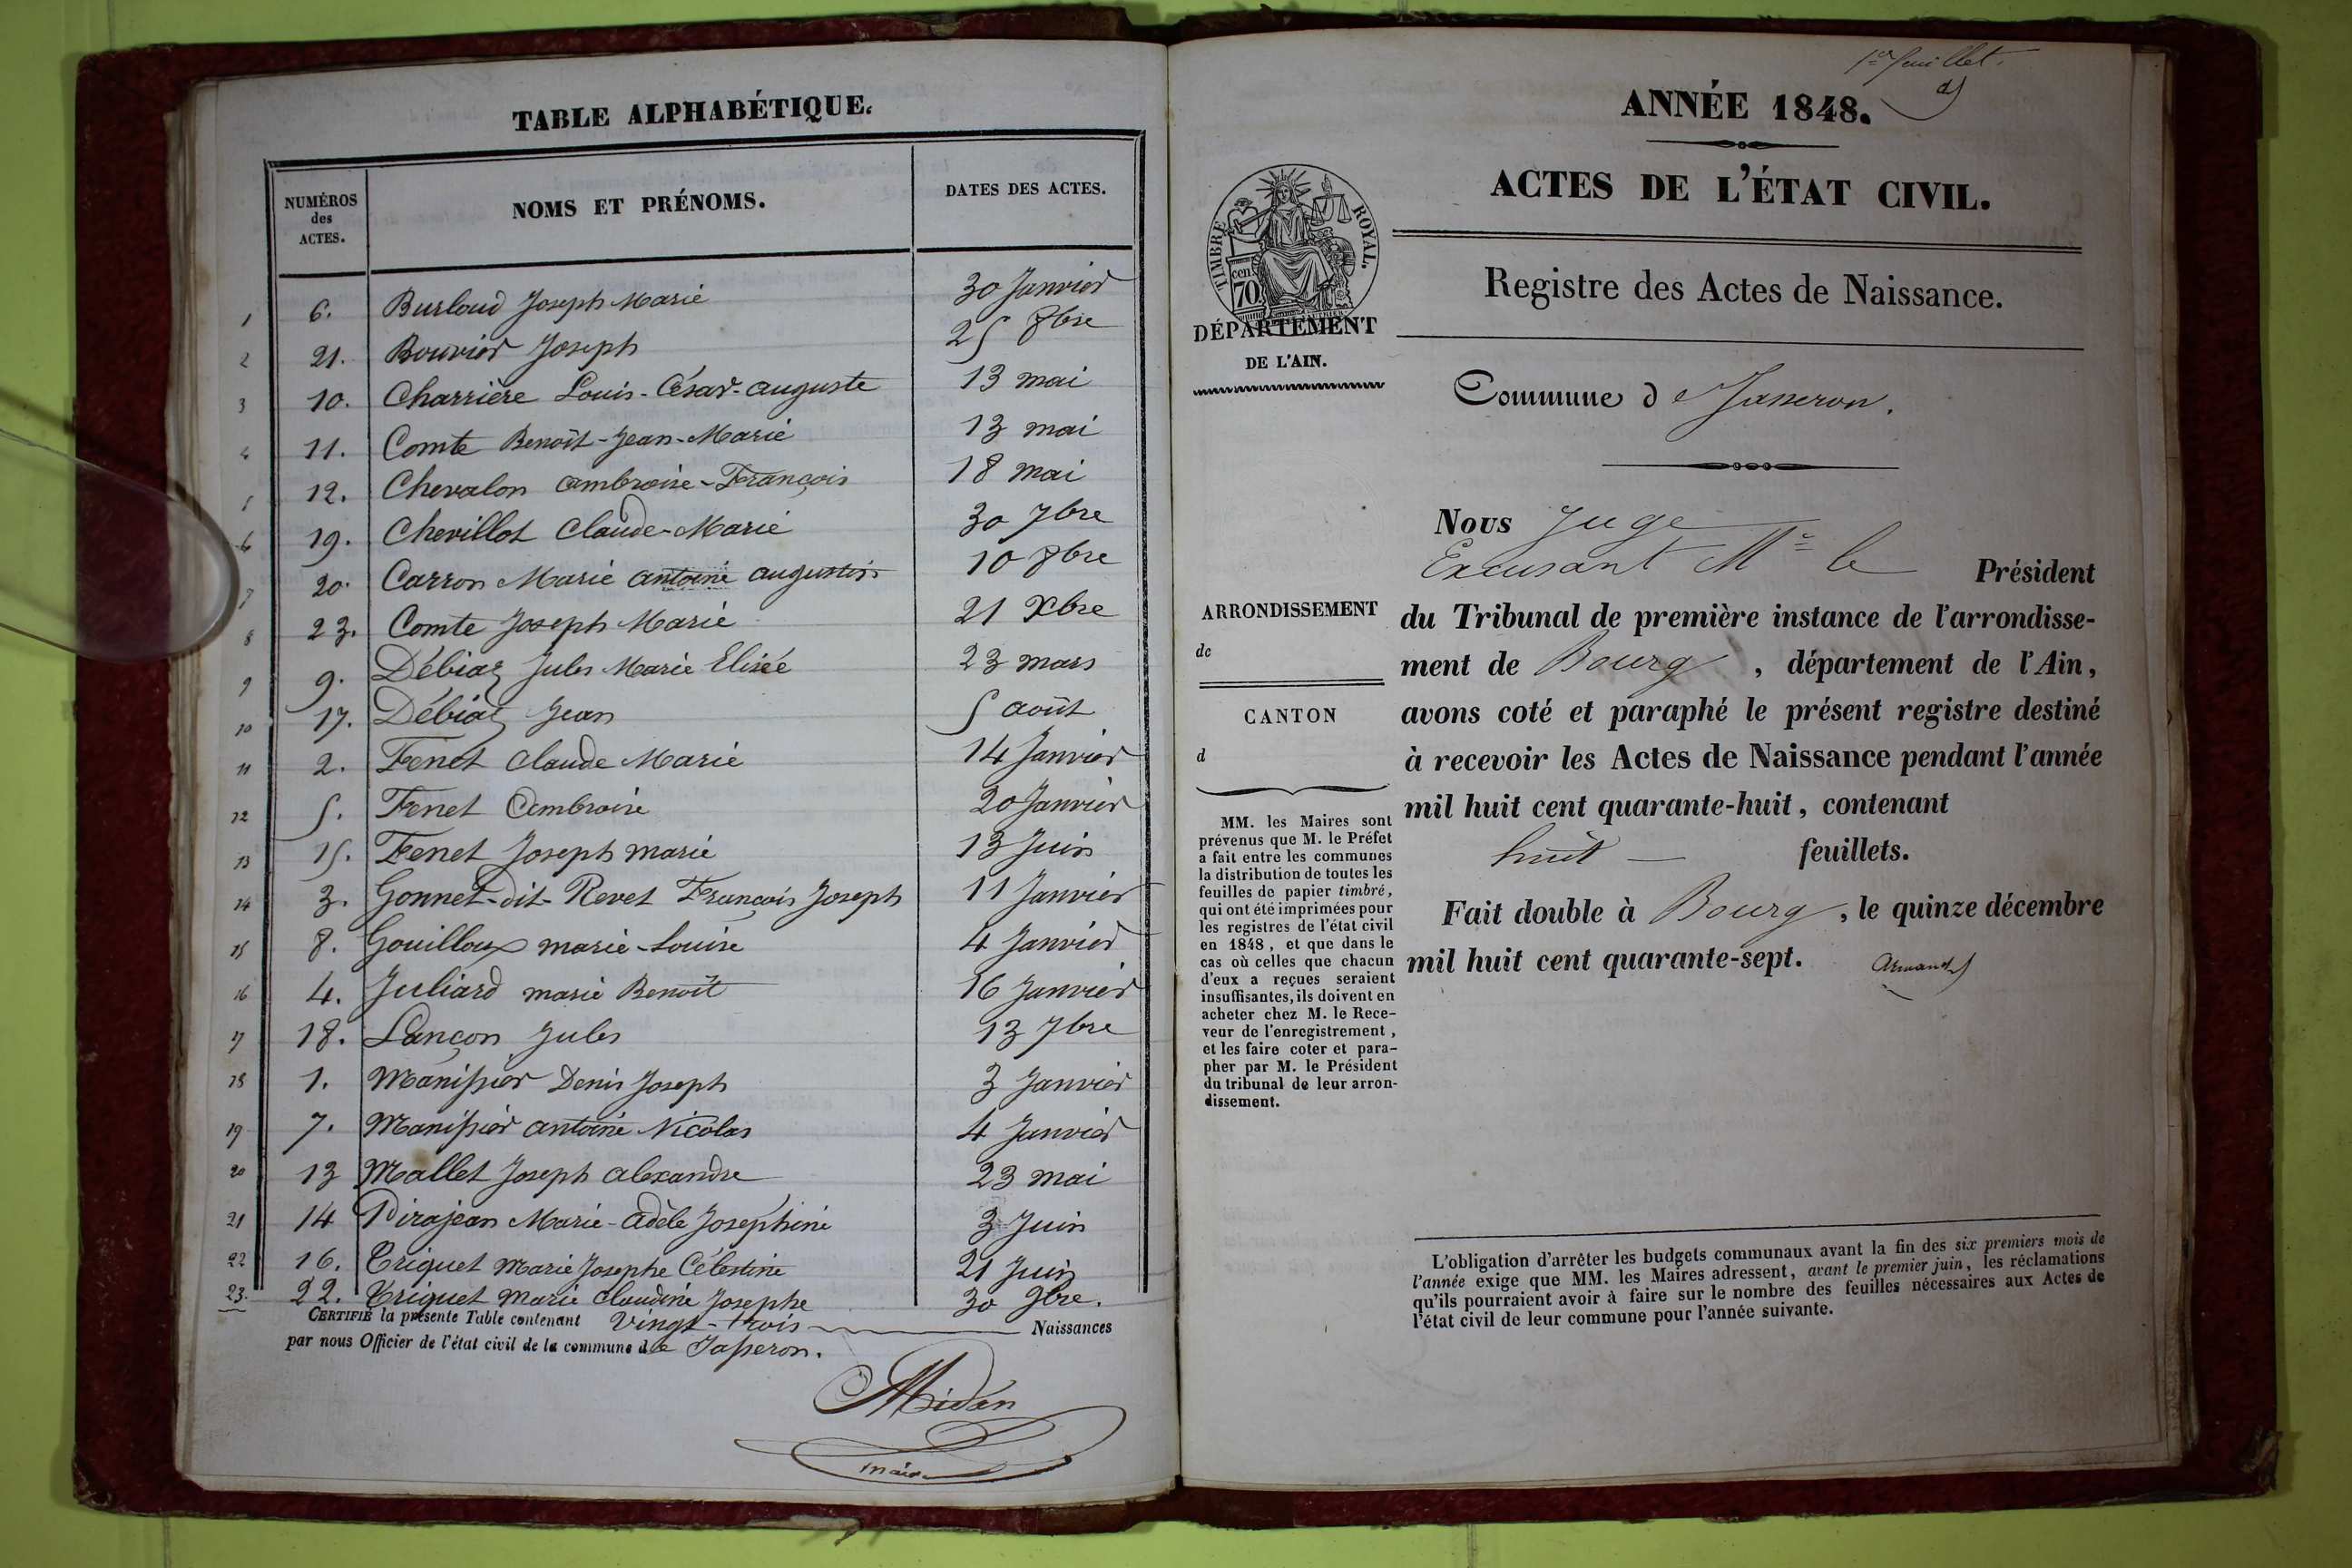 TABLE ALPHABÉTIQUE.
NUMÉROS des ACTES. NOMS ET PRÉNOMS. DATES DES ACTES.
1 6. Burloud Joseph Marie 30 Janvier
2 21. Bouvier Joseph 25 8bre
3 10. Charrière Louis-César-auguste 13 mai
4 11. Comte Benoît-Jean-Marie 13 mai
5 12. Chevalon ambroise-François 18 mai
6 19. Chevillot Claude-Marie 30 7bre
7 20. Carron Marie antoine augustin 10 8bre
8 23. Comte Joseph Marie 21 Xbre
9 9. Débiaz Jules Marie Elisée 23 mars
10 17. Débiaz Jean 5 août
11 2. Fenet Claude Marie 14 Janvier
12 5. Fenet Ambroise 20 Janvier
13 15. Fenet Joseph marie 13 Juin
14 3. Gonnet-dit-Revet François Joseph 11 Janvier
15 8. Gouilloux marie-Louise 4 Janvier
16 4. Juliard marie Benoît 16 Janvier
17 18. Lançon Jules 13 7bre
18 1. Manissier Denis Joseph 3 Janvier
19 7. Manissier antoine Nicolas 4 Janvier
20 13 Mallet Joseph alexandre 23 mai
21 14 Pirajean Marie-adèle Joséphine 3 Juin
22 16. Triquet Marie Josephe Célestine 21 Juin
23. 22. Triquet Marie Claudine Josephe 30 9bre.
CERTIFIÉ la présente Table contenant Vingt-trois Naissances
par nous Officier de l'état civil de la commune de Jasseron.
Midan
maire
1er feuillet.
ANNÉE 1848.
ACTES DE L'ÉTAT CIVIL.
TIMBRE ROYAL.
cen. 70
Registre des Actes de Naissance.
DÉPARTEMENT
DE L'AIN.
Commune d Jasseron.
Nous Juge
Excusant Mr le Président
ARRONDISSEMENT
de
CANTON
d
du Tribunal de première instance de l'arrondisse-
ment de Bourg, département de l'Ain,
avons coté et paraphé le présent registre destiné
à recevoir les Actes de Naissance pendant l'année
mil huit cent quarante-huit, contenant
huit feuillets.
Fait double à Bourg, le quinze décembre
mil huit cent quarante-sept. Armand
MM. les Maires sont
prévenus que M. le Préfet
a fait entre les communes
la distribution de toutes les
feuilles de papier timbré,
qui ont été imprimées pour
les registres de l'état civil
en 1848, et que dans le
cas où celles que chacun
d'eux a reçues seraient
insuffisantes, ils doivent en
acheter chez M. le Rece-
veur de l'enregistrement,
et les faire coter et para-
pher par M. le Président
du tribunal de leur arron-
dissement.
L'obligation d'arrêter les budgets communaux avant la fin des six premiers mois de
l'année exige que MM. les Maires adressent, avant le premier juin, les réclamations
qu'ils pourraient avoir à faire sur le nombre des feuilles nécessaires aux Actes de
l'état civil de leur commune pour l'année suivante.